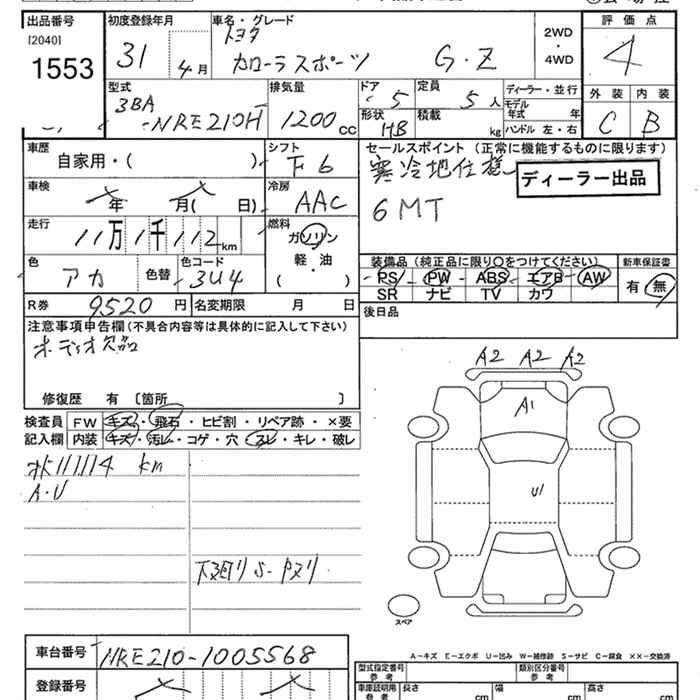 出品番号
[2040]
1553
初度登録年月
31
4月
車名・グレード
トヨタ
カローラスポーツ G・Z
2WD
・
4WD
評価点
4
外装 内装
C B
型式
3BA
-NRE210H
排気量
1200cc
ドア
5
定員
5人
形状
HB
積載
kg
ディーラー・並行
モデル
年式 年
ハンドル 左・右
車歴
自家用・( )
シフト
F6
セールスポイント (正常に機能するものに限ります)
寒冷地仕様
ディーラー出品
6MT
車検
年 月( 日)
冷房
AAC
走行
11万1千112km
燃料
ガソリン
軽・油
( )
色
アカ
色替
色コード
3U4
装備品 (純正品に限り〇をつけてください)
PS PW ABS エアB AW
SR ナビ TV カワ
新車保証書
有・無
R券 9520円
名変期限 月 日
後日品
注意事項申告欄(不具合内容等は具体的に記入して下さい)
オーディオ欠品
修復歴 有 〔箇所 〕
検査員
記入欄
FW キズ・飛石・ヒビ割・リペア跡・×要
内装 キズ・汚レ・コゲ・穴・スレ・キレ・破レ
111114 km
A・U
下廻りS・
A2 A2 A2
A1
U1
スペア
A－キズ E－エクボ U－凹み W－補修跡 S－サビ C－腐食 ××－交換済
車台番号 NRE210-1005568
登録番号
型式指定番号
参考
類別区分番号
参考
車庫証明用
参考
長さ cm
幅 cm
高さ cm